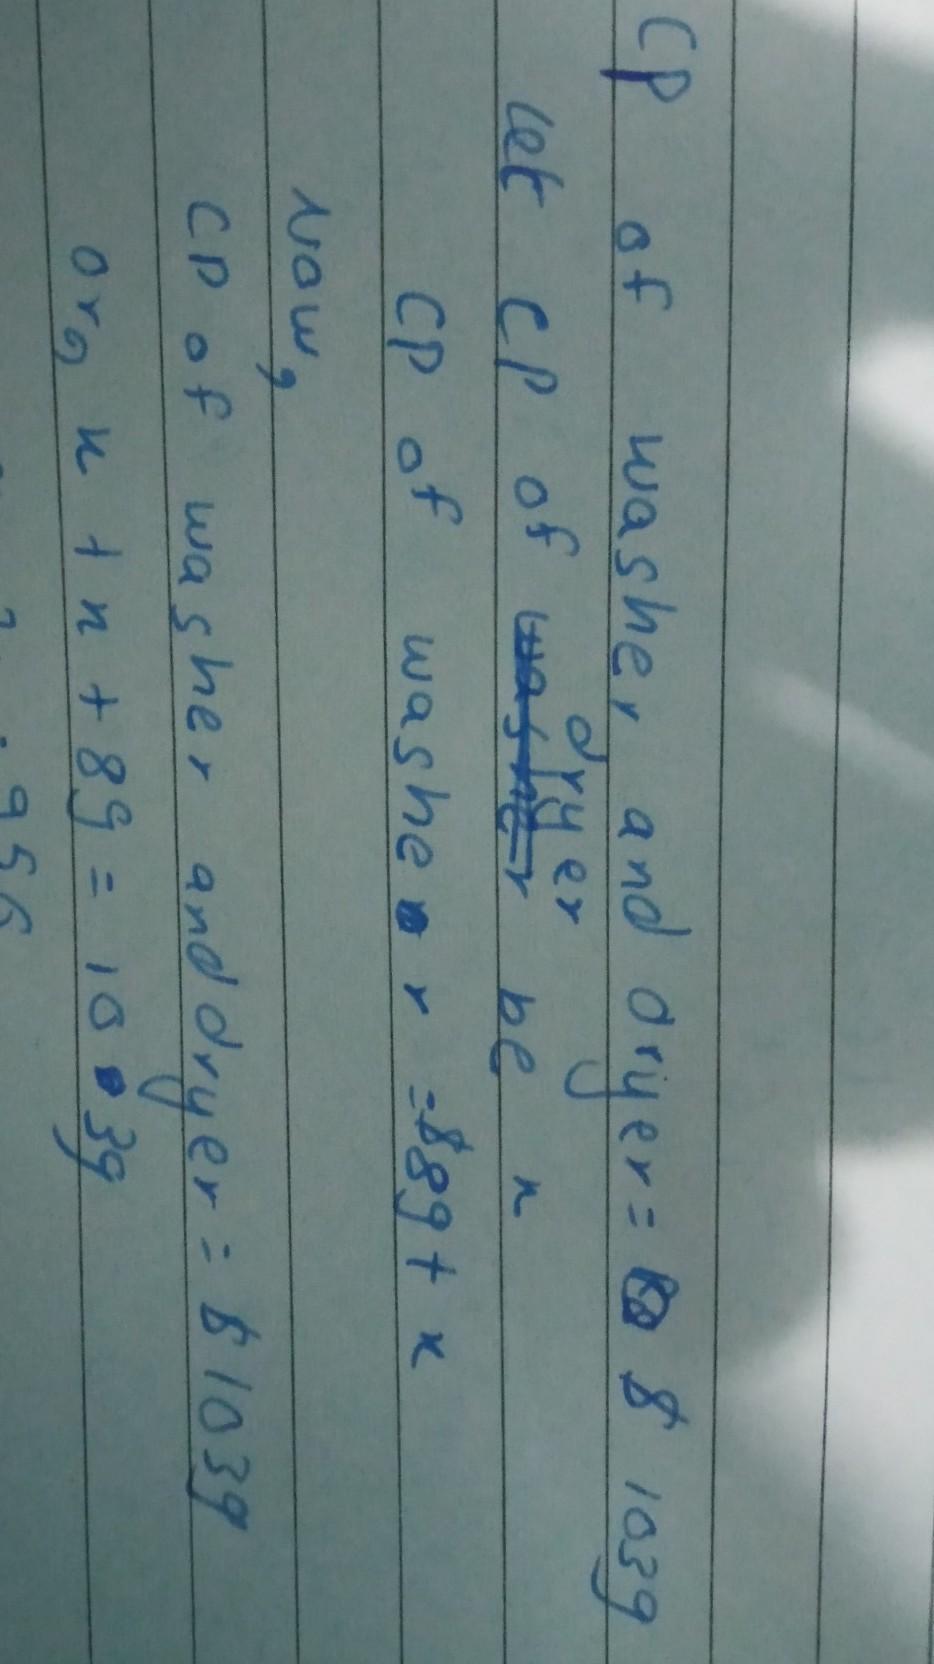 CP of washer and dryer = $ 1039
let CP of dryer be x
CP of washer = $89 + x
Now,
CP of washer and dryer = $1039
or, x + x + 89 = 1039